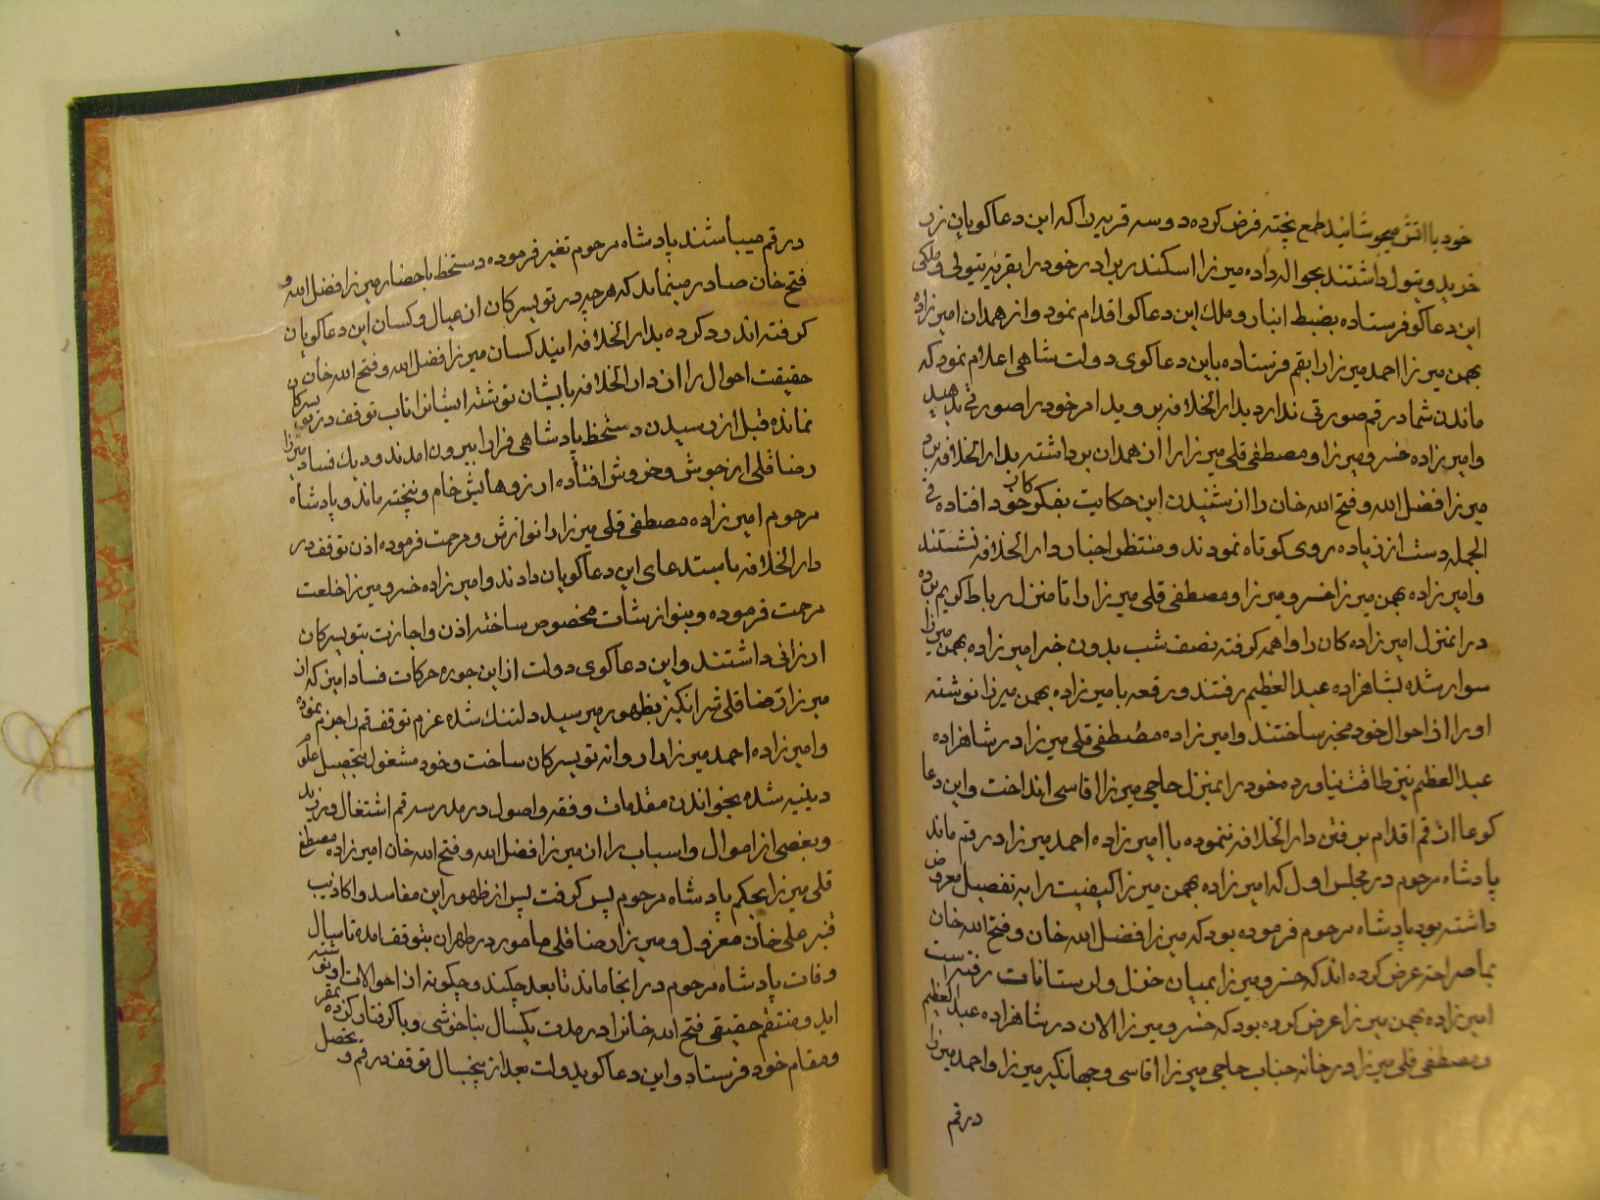 خود با اتش میجوشانید طمع پخته فرض کرده دو سه قریه را که این دعاکویان زر
خرید و تیول داشتند بحواله داده میرزا اسکندر برادر خود را بقریه تیولی و ملکی
این دعاکو فرستاده بضبط انبار و ملک این دعاکو اقدام نمود و از همدان امیرزاده
بهمن میرزا احمد میرزا را بقم فرستاده باین دعاکوی دولت شاهی اعلام نمود که
ماندن شما در قم صورتی ندارد بدار الخلافه بروید امر خود را صورتی بدهید
و امیرزاده خسرو میرزا و مصطفی قلی میرزا را از همدان برداشته بدار الخلافه برد
میرزا فضل الله و فتح الله خان را از شنیدن این حکایت بفکر کار خود افتاده فی
الجمله دست از زیاده روی کوتاه نمودند و منتظر اخبار دار الخلافه نشستند
و امیرزاده بهمن میرزا خسرو میرزا و مصطفی قلی میرزا را تا منزل رباط کریم برده
در انمنزل امیرزاده کان را واهمه کرفته نصف شب بدون خبر امیرزاده بهمن میرزا
سوار شده بشاهزاده عبد العظیم رفتند و رقعه بامیرزاده بهمن میرزا نوشته
او را از احوال خود مخبر ساختند و امیرزاده مصطفی قلی میرزا در شاهزاده
عبد العظیم نیز طاقت نیاورده خود را بمنزل حاجی میرزا اقاسی انداخت و این دعا
کو عا از قم اقدام برفتن دار الخلافه ننموده با امیرزاده احمد میرزا در قم ماند
پادشاه مرحوم در مجلس اول که امیرزاده بهمن میرزا کیفیت را به تفصیل معروض
داشته بود پادشاه مرحوم فرموده بود که میرزا فضل الله خان و فتح الله خان
بما صراحة عرض کرده اند که خسرو میرزا بمیان جنل و لرستانات رفته است
امیرزاده بهمن میرزا عرض کرده بود که خسرو میرزا الان در شاهزاده عبد العظیم
و مصطفی قلی میرزا در خانه جناب حاجی میرزا اقاسی و جهانکیر میرزا و احمد میرزا
در قم
در قم میباشند پادشاه مرحوم تغیر فرموده دستخط باحضار میرزا فضل الله و
فتح خان صادر مینماید که هر چه در تویسرکان از عیال و کسان این دعاکویان
کرفته اند رد کرده بدار الخلافه ایند کسان میرزا فضل الله و فتح الله خان
حقیقت احوال را از دار الخلافه بایشان نوشته ایشانرا تاب توقف در تویسرکان
نمانده قبل از رسیدن دستخط پادشاهی فرارا بیرون امدند و دیک فساد میرزا
رضا قلی از جوش و خروش افتاده ارزوهایش خام و نپخته ماند و پادشاه
مرحوم امیرزاده مصطفی قلی میرزا را نوازش و مرحمت فرموده اذن توقف در
دار الخلافه باستدعای این دعاکویان دادند و امیرزاده خسرو میرزا خلعت
مرحمت فرموده و بنوازشات مخصوص ساخته اذن و اجازت بتویسرکان
ارزانی داشتند و این دعاکوی دولت از این جوره حرکات فساد امیز که از
میرزا رضا قلی شر انکیز بظهور میرسید دلتنک شده عزم توقف قم را جزم نموده
و امیرزاده احمد میرزا را روانه تویسرکان ساخت و خود مشغول بتحصیل علوم
دینیه شده بخواندن مقدمات و فقه و اصول در مدرسه قم اشتغال ورزید
و بعضی از اموال و اسباب را از میرزا فضل الله و فتح الله خان امیرزاده مصطفی
قلی میرزا بحکم پادشاه مرحوم پس کرفت پس از ظهور این مفاسد و اکاذیب
قنبر علی خان معزول و میرزا رضا قلی مامور در طهران بتوقف امده تا سال
وفات پادشاه مرحوم در انجا ماند تا بعد چکند و چکونه از احوالات او نوشته
اید و منتقم حقیقی فتح الله خانرا در مدت یکسال بناخوشی وبا کرفتار کرده بمقر
و مقام خود فرستاد و این دعاکوی دولت بعد از پنجسال توقف در قم و تحصیل